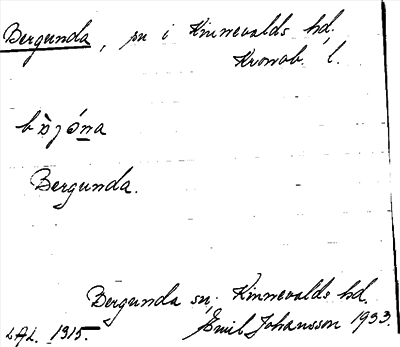 Bergunda, sn i Kinnevalds hd.
Kronob. l.
Bergunda.
Bergunda sn, Kinnevalds hd.
LAL. 1315. Emil Johansson 1933.